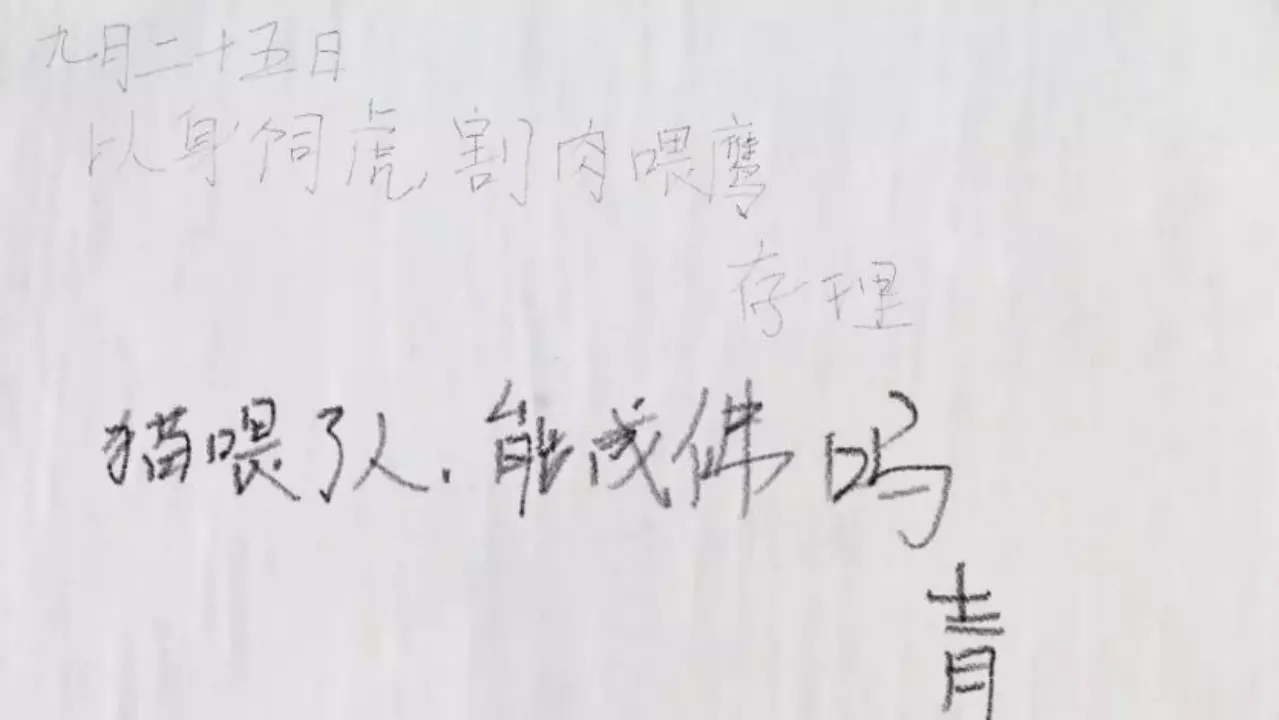 九月二十五日
以身饲虎,割肉喂鹰
存理
猫喂了人.能成佛吗
青